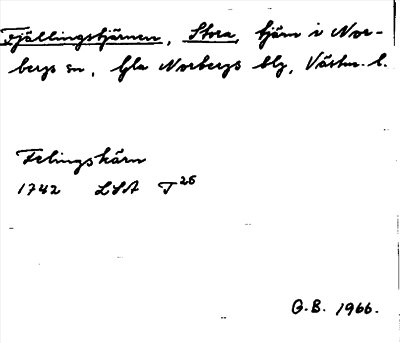 Fjällingstjärnen, Stora, tjärn i Nor-
bergs sn, Gla Norbergs blg, Västm. l.
Felingskärn
1742 LSA T 26
G.B. 1966.